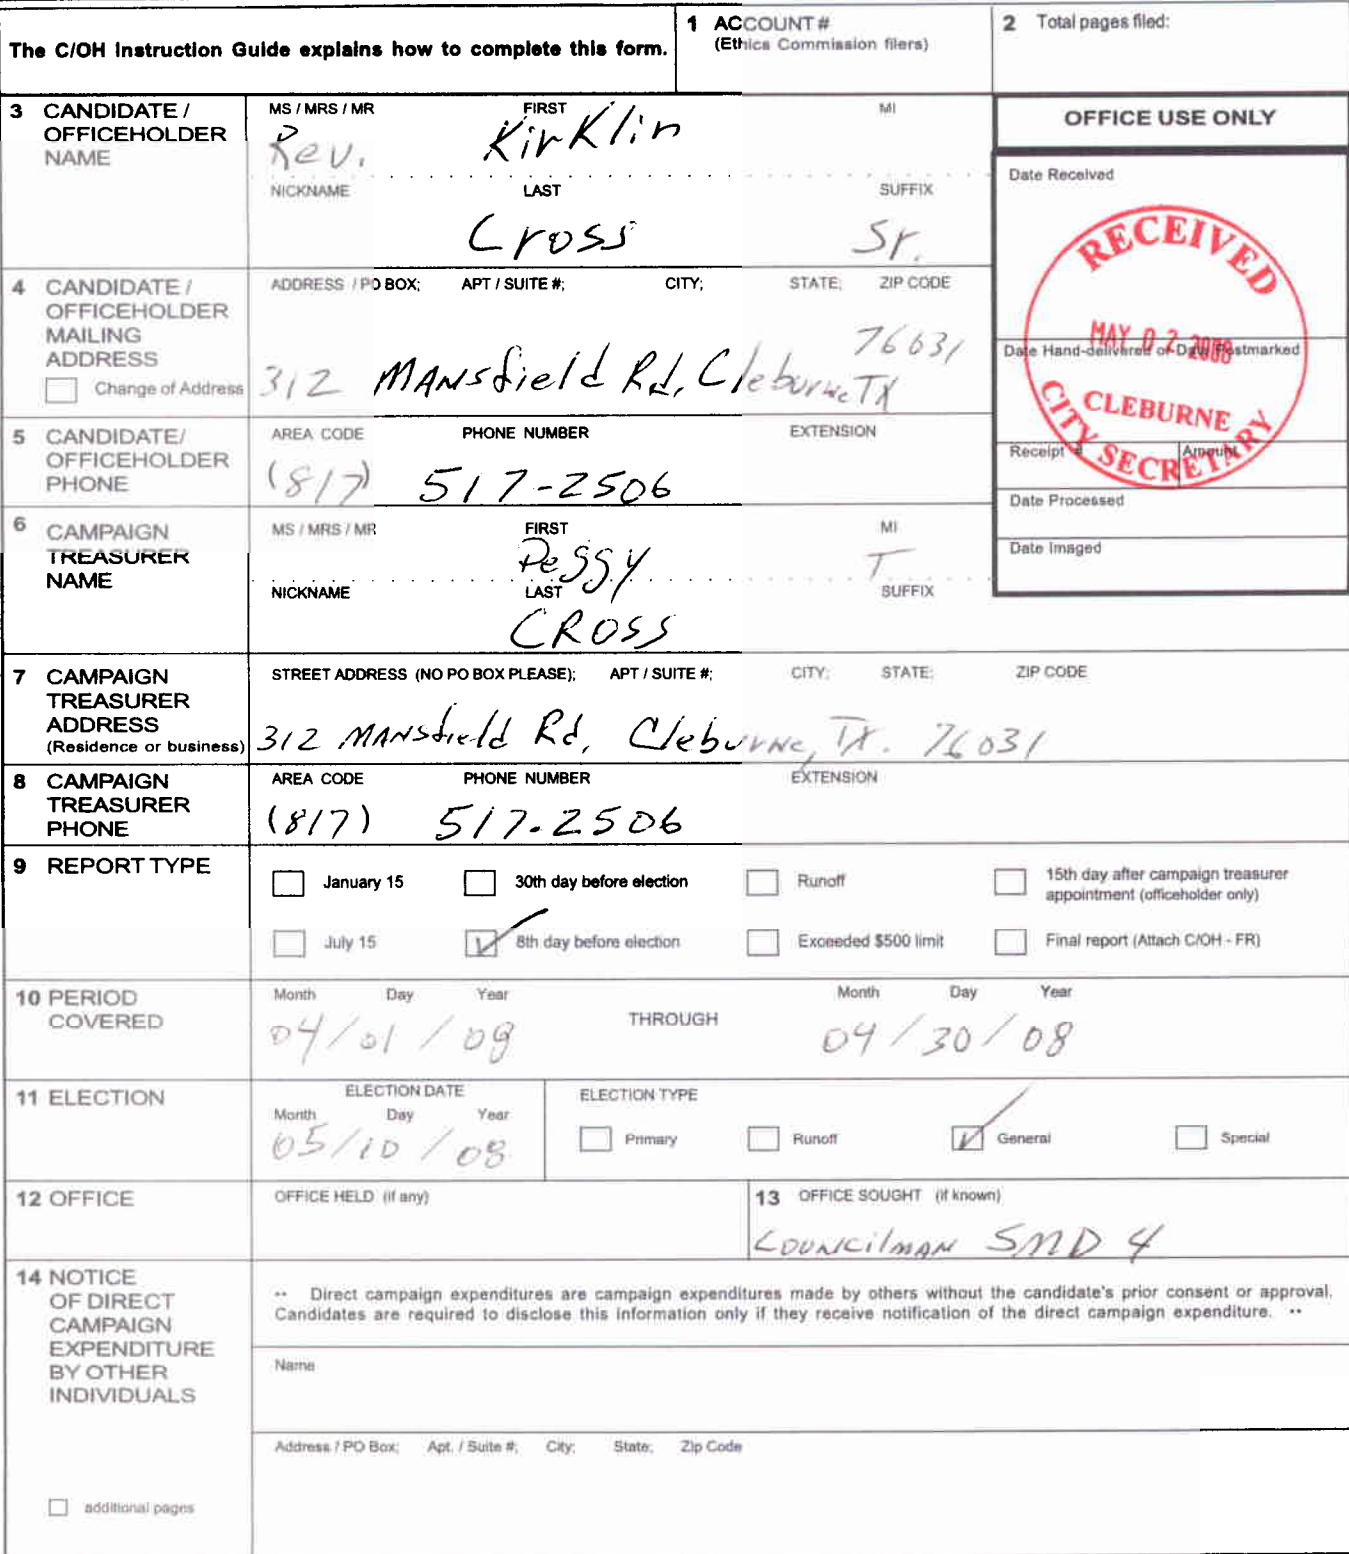 The C/OH Instruction Guide explains how to complete this form.
1 ACCOUNT #
(Ethics Commission filers)
2 Total pages filed:
3 CANDIDATE /
OFFICEHOLDER
NAME
MS / MRS / MR FIRST MI
Rev. Kirklin
NICKNAME LAST SUFFIX
Cross Sr.
OFFICE USE ONLY
Date Received
RECEIVED
MAY 02 2008
CLEBURNE
CITY SECRETARY
Date Hand-delivered or Date Postmarked
Receipt # Amount
Date Processed
Date Imaged
4 CANDIDATE /
OFFICEHOLDER
MAILING
ADDRESS
Change of Address
ADDRESS / PO BOX; APT / SUITE #; CITY; STATE; ZIP CODE
76031
312 MANsfield Rd, Cleburne TX
5 CANDIDATE/
OFFICEHOLDER
PHONE
AREA CODE PHONE NUMBER EXTENSION
(817) 517-2506
6 CAMPAIGN
TREASURER
NAME
MS / MRS / MR FIRST MI
Peggy T
NICKNAME LAST SUFFIX
CROSS
7 CAMPAIGN
TREASURER
ADDRESS
(Residence or business)
STREET ADDRESS (NO PO BOX PLEASE); APT / SUITE #; CITY; STATE; ZIP CODE
312 MANsfield Rd, Cleburne, TX. 76031
8 CAMPAIGN
TREASURER
PHONE
AREA CODE PHONE NUMBER EXTENSION
(817) 517-2506
9 REPORT TYPE
January 15 30th day before election Runoff 15th day after campaign treasurer
appointment (officeholder only)
July 15 8th day before election Exceeded $500 limit Final report (Attach C/OH - FR)
10 PERIOD
COVERED
Month Day Year THROUGH Month Day Year
04/01/08 04/30/08
11 ELECTION
ELECTION DATE
Month Day Year
05/10/08
ELECTION TYPE
Primary Runoff General Special
12 OFFICE
OFFICE HELD (if any)
13 OFFICE SOUGHT (if known)
COUNCilMAN SMD 4
14 NOTICE
OF DIRECT
CAMPAIGN
EXPENDITURE
BY OTHER
INDIVIDUALS
additional pages
•• Direct campaign expenditures are campaign expenditures made by others without the candidate's prior consent or approval.
Candidates are required to disclose this information only if they receive notification of the direct campaign expenditure. ••
Name
Address / PO Box; Apt. / Suite #; City; State; Zip Code